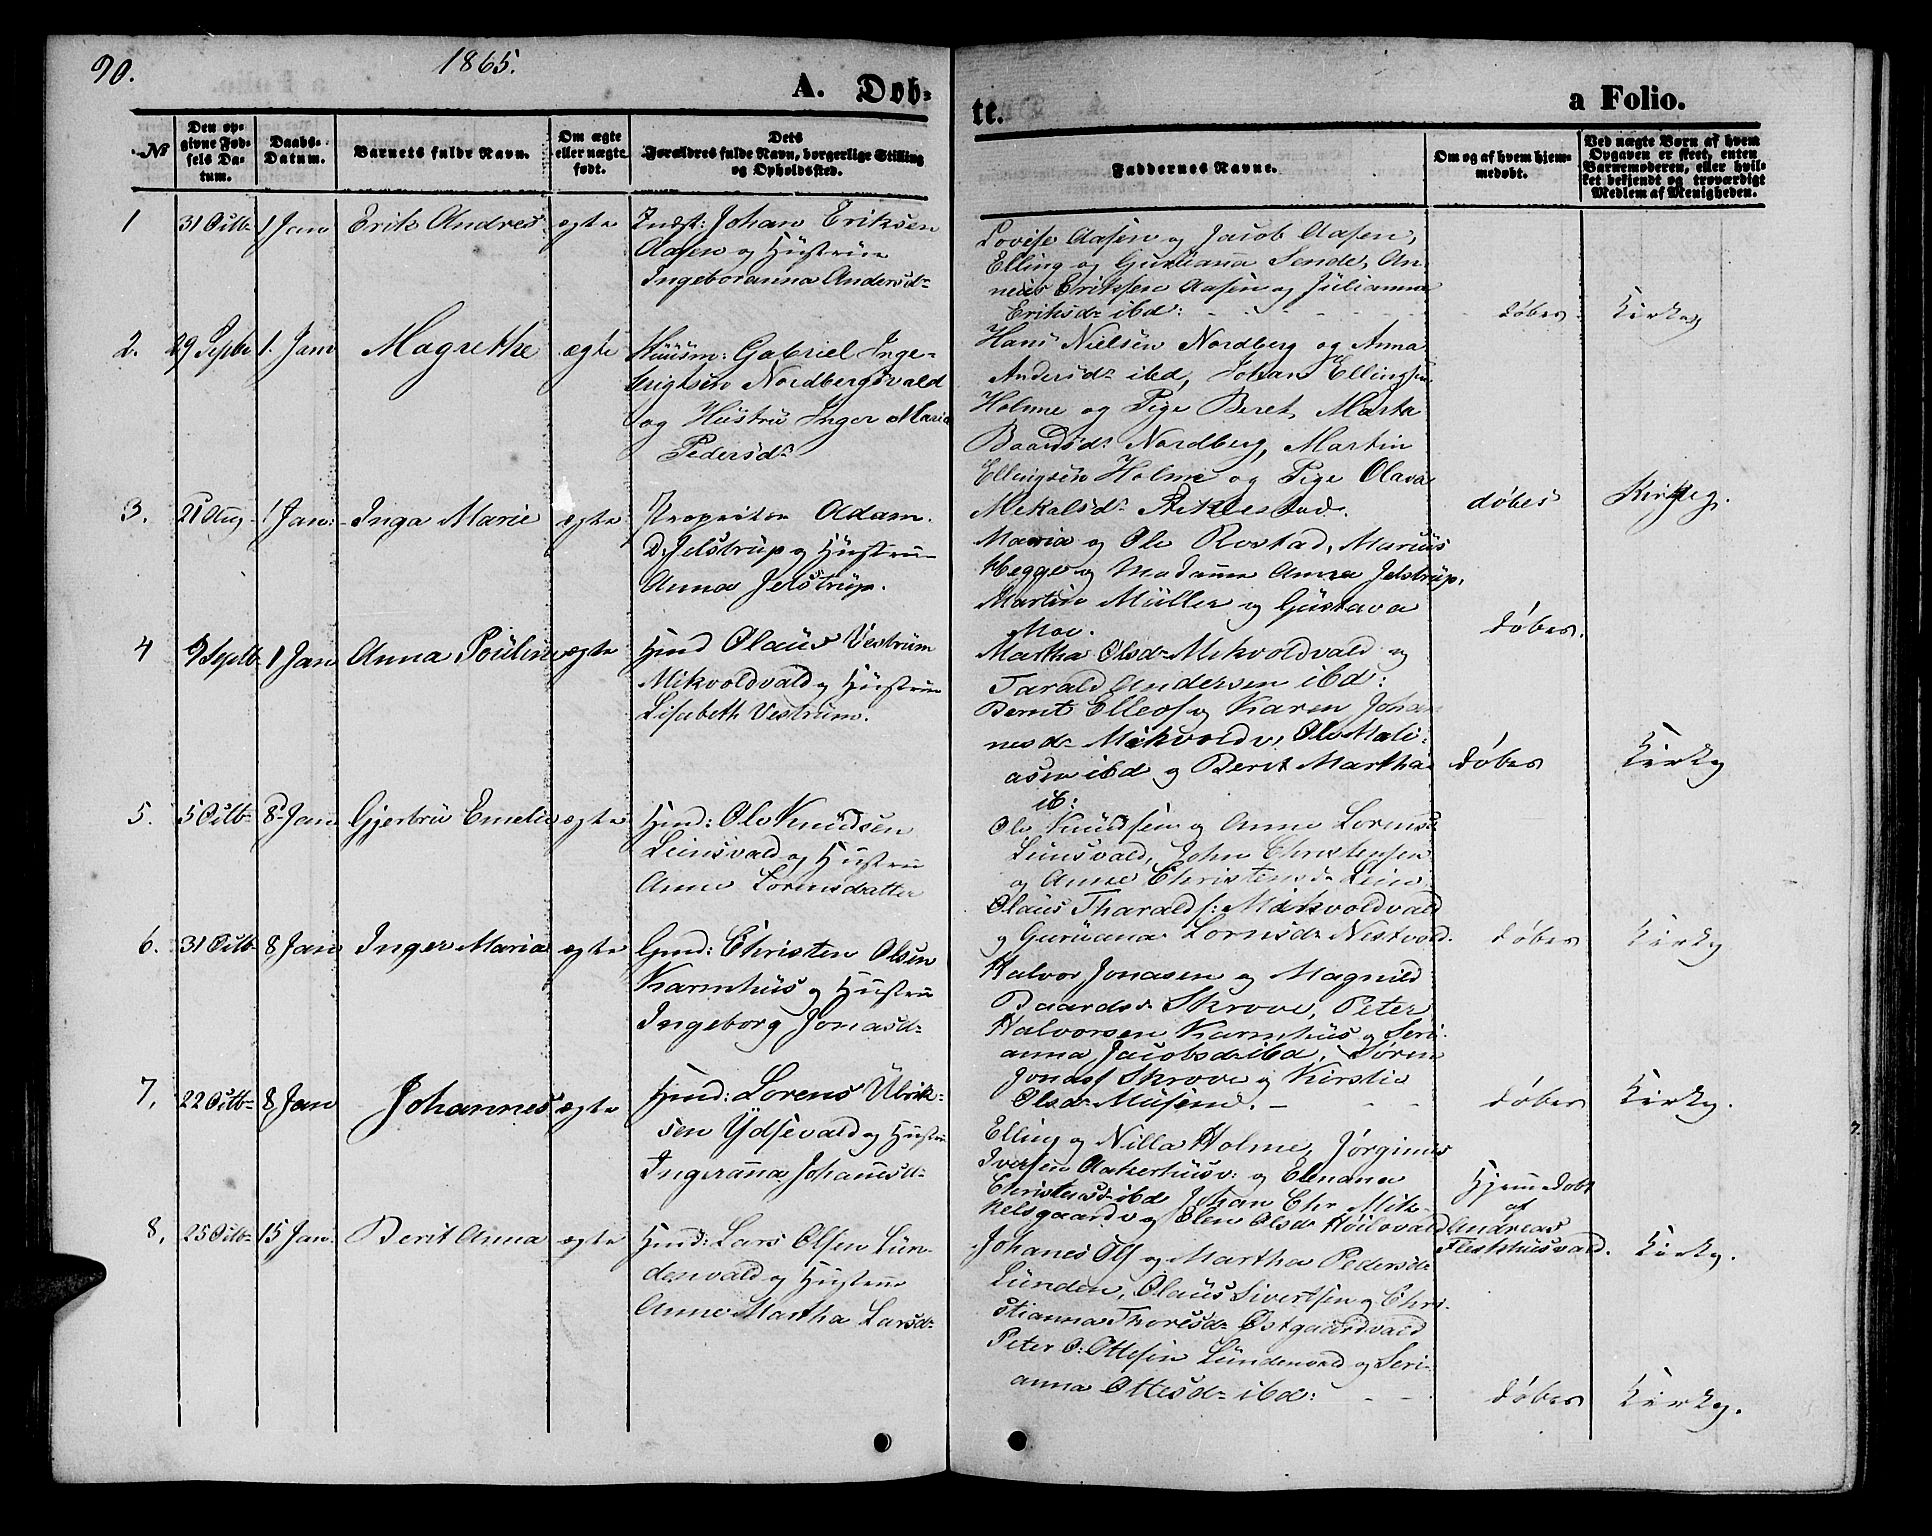 90.
1865.
A. Døb-
te.
a Folio.
№
Den op-
givne Fød-
sels Da-
tum.
Daabs-
Datum.
Barnets fulde Navn.
Om ægte
eller uægte
født.
Dets
Forældres fulde Navn, borgerlige Stilling
og Opholdssted.
Faddernes Navne.
Om og af hvem hjem-
medøbt.
Ved uægte Børn af hvem
Opgaven er skeet, enten
Barnemoderen, eller hvil-
ket bekjendt og troværdigt
Medlem af Menigheden.
1
31 Octb
1 Jan
Erik Andres
ægte
Indst: Johan Eriksen
Aasen og Hustrue
Ingeboranna Andersd
Lovise Aasen og Jacob Aasen,
Elling og Gurianna Sende, An-
neus Eriksen Aasen og Julianna
Eriksd ibd:
døbes
Kirkeg
2.
29 Septbr
1. Jan
Magrethe
ægte
Huusm: Gabriel Inge-
brigtsen Nordbergsvald
og Hustru Inger Maria
Pedersd
Hans Nielsen Nordberg og Anna
Andersd ibd, Johan Ellingsen
Holme og Pige Beret Marta
Baardsd Nordberg, Martin
Ellingsen Holme og Pige Olava
Mekalsd
døbes
Kirkeg.
3.
21 Aug
1 Jan:
Inga Marie
ægte
Proprietær Adam
D. Jelstrup og Hustrue
Anna Jelstrup.
Maria og Ole Rostad, Marius
Hegge og Madame Anna Jelstrup,
Martin Müller og Gustava
Moe.
døbes.
4
9 Septb
1 Jan
Anna Pouline
ægte
Hmd Olaus Vestrum
Mikvoldvald og Hustrue
Lisabeth Vestrum.
Martha Olsd Mikvoldvald og
Tarald Andersen ibd:
Bernt Ellefs og Karen Johan-
nesd Mikvoldv, Ole Mali-
asen ibd og Beret Martha
ib:
døbes
Kirkeg
5.
5 Octb
8 Jan
Gjertru Emelie
ægte
Hmd: Ole Knudsen
Leinsvald og Hustrue
Anne Lorensdatter
Ole Knudsen og Anne Lorensd
Leinsvald, John Christensen
og Anne Christensd Lein
Olaus Tharalds: Mikvoldvald
og Guruana Lornsd Nestvold.
døbes
Kirkeg
6.
31 Octb
8 Jan
Inger Maria
ægte
Gmd: Christen Olsen
Karmhus og Hustrue
Ingeborg Jonasd
Halvor Jonasen og Magnild
Baardsd Skrove, Peter
Halvorsen Karmhus og Seri-
anna Jacobsd ibd, Søren
Jonass Skrove og Kirstie
Olsd Musem.
døbes
Kirkeg.
7,
22 Octb
8 Jan
Johannes
ægte
Hmd: Lorens Ulrik-
sen Ydsevald og Hustru
Ingeranna Johanesd
Elling og Nilla Holme, Jørginus
Iversen Aakerhusv: og Elenana
Christensd ibd Johan Chr Mik-
kelsgaardv og Elen Olsd
Hjemmedøbt
af
Andreas
Fleskhusvald.
Kirkeg.
8,
25 Octb
15 Jan.
Berit Anna
ægte
Hmd: Lars Olsen Lun-
denvald og Hustrue
Anne Martha Larsd
Johanes Ols og Martha Pedersd
Lunden, Olaus Sivertsen og Chri-
stianna Thoresd Østgaardvald
Peter O: Ottesen Lundenvald og Seri-
anna Ottesd ibd:
døbes
Kirkeg.